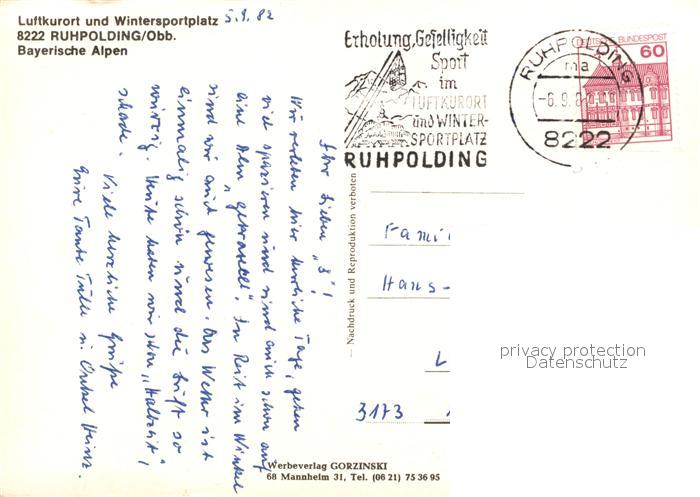 Luftkurort und Wintersportplatz
8222 RUHPOLDING/Obb.
Bayerische Alpen
5.9.82
Ihr lieben "3"!
Wir verleben hier herrliche Tage, gehen
viel spazieren und sind auch schon auf
eine Alm "gekraxelt". In Reit im Winkel
sind wir auch gewesen. Das Wetter ist
einmalig schön und die Luft so
würzig. Heute haben wir schon "Halbzeit",
schade.
Viele herzliche Grüße
Eure Tante Tulle u. Onkel Heinz.
Erholung, Geselligkeit
Sport
im
LUFTKURORT
und WINTER-
SPORTPLATZ
RUHPOLDING
RUHPOLDING
ma
-6.9.8
8222
DEUTSCHE BUNDESPOST
60
— Nachdruck und Reproduktion verboten
Fami
Hans-
L
3173
privacy protection
Datenschutz
Werbeverlag GORZINSKI
68 Mannheim 31, Tel. (06 21) 75 36 95